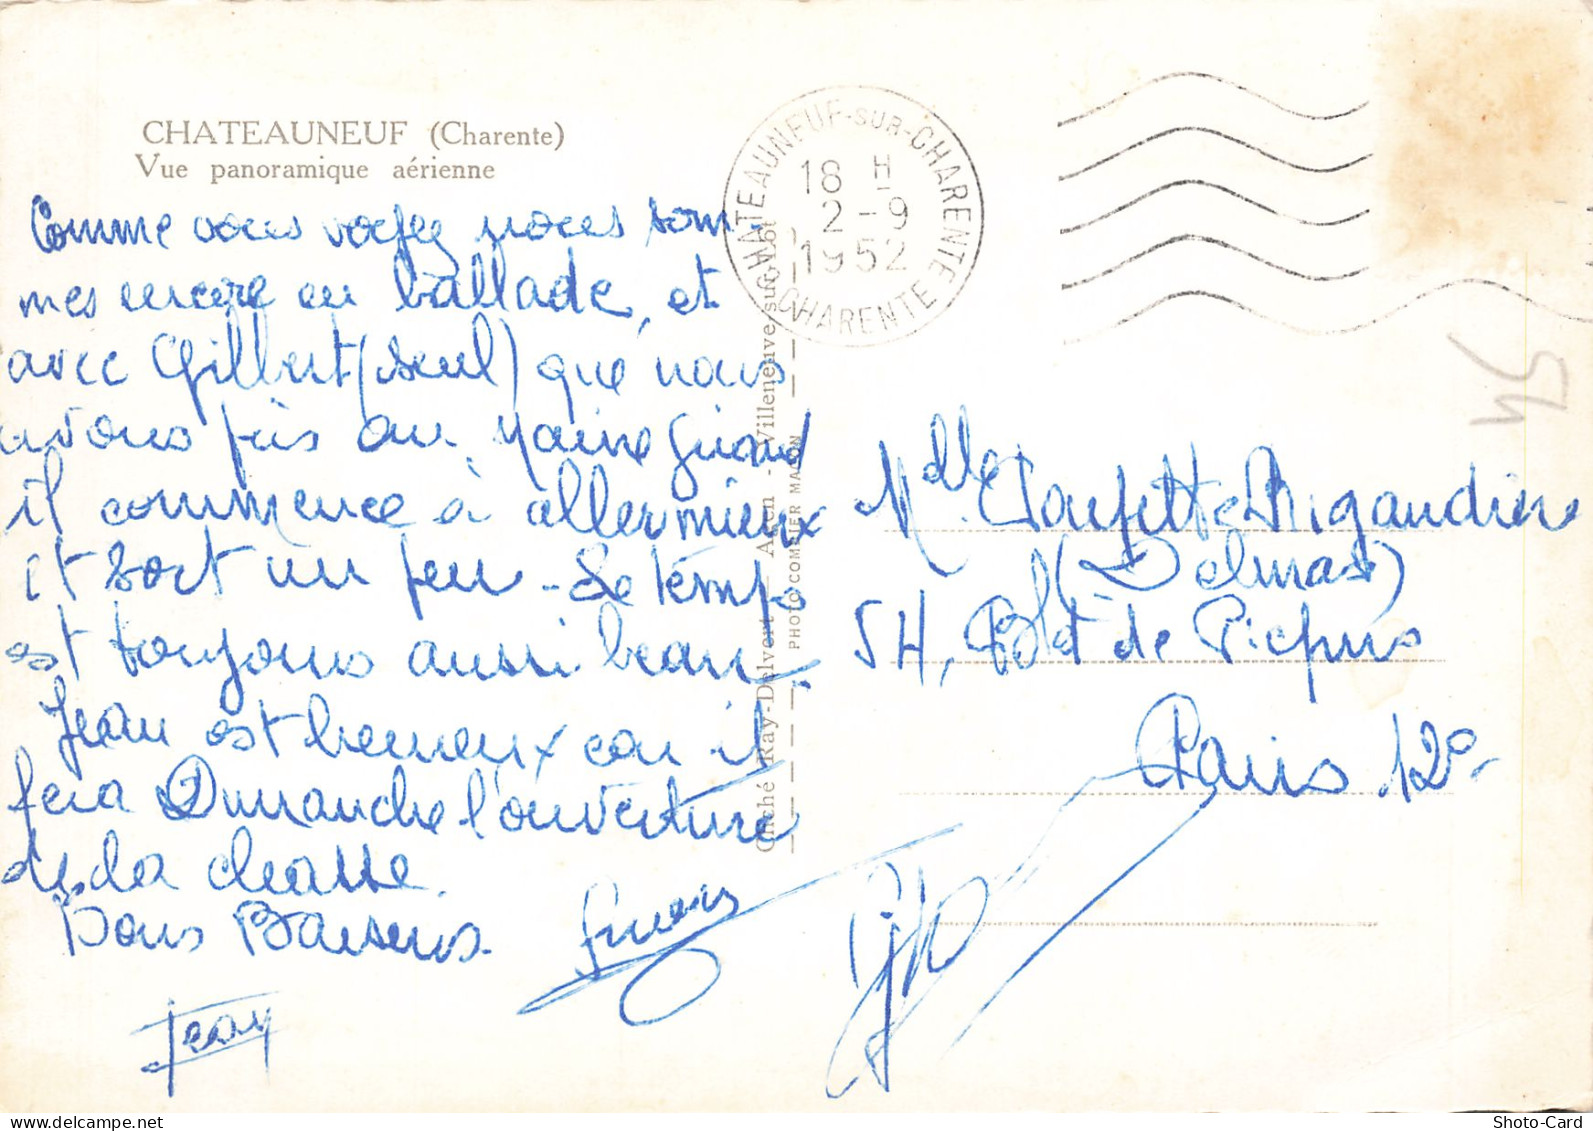 CHATEAUNEUF (Charente)
Vue panoramique aérienne
Comme vous voyez nous som
mes encore en ballade, et
avec Gilbert (seul) que nous
avons pris au Maine Giraud
il commence à aller mieux
et sort un peu - Le temps
est toujours aussi beau.
Jean est heureux car il
fera Dimanche l'ouverture
de la chasse.
Bons Baisers.
Jean
CHATEAUNEUF-SUR-CHARENTE
18 H
2-9
1952
CHARENTE
Cliché Ray-Delvert - Agen - Villeneuve-sur-Lot
PHOTO COMBIER MACON
54
Mdlle Rigaudière
(Delmas)
54, Bld de Picpus
Paris 12e
Shoto-Card